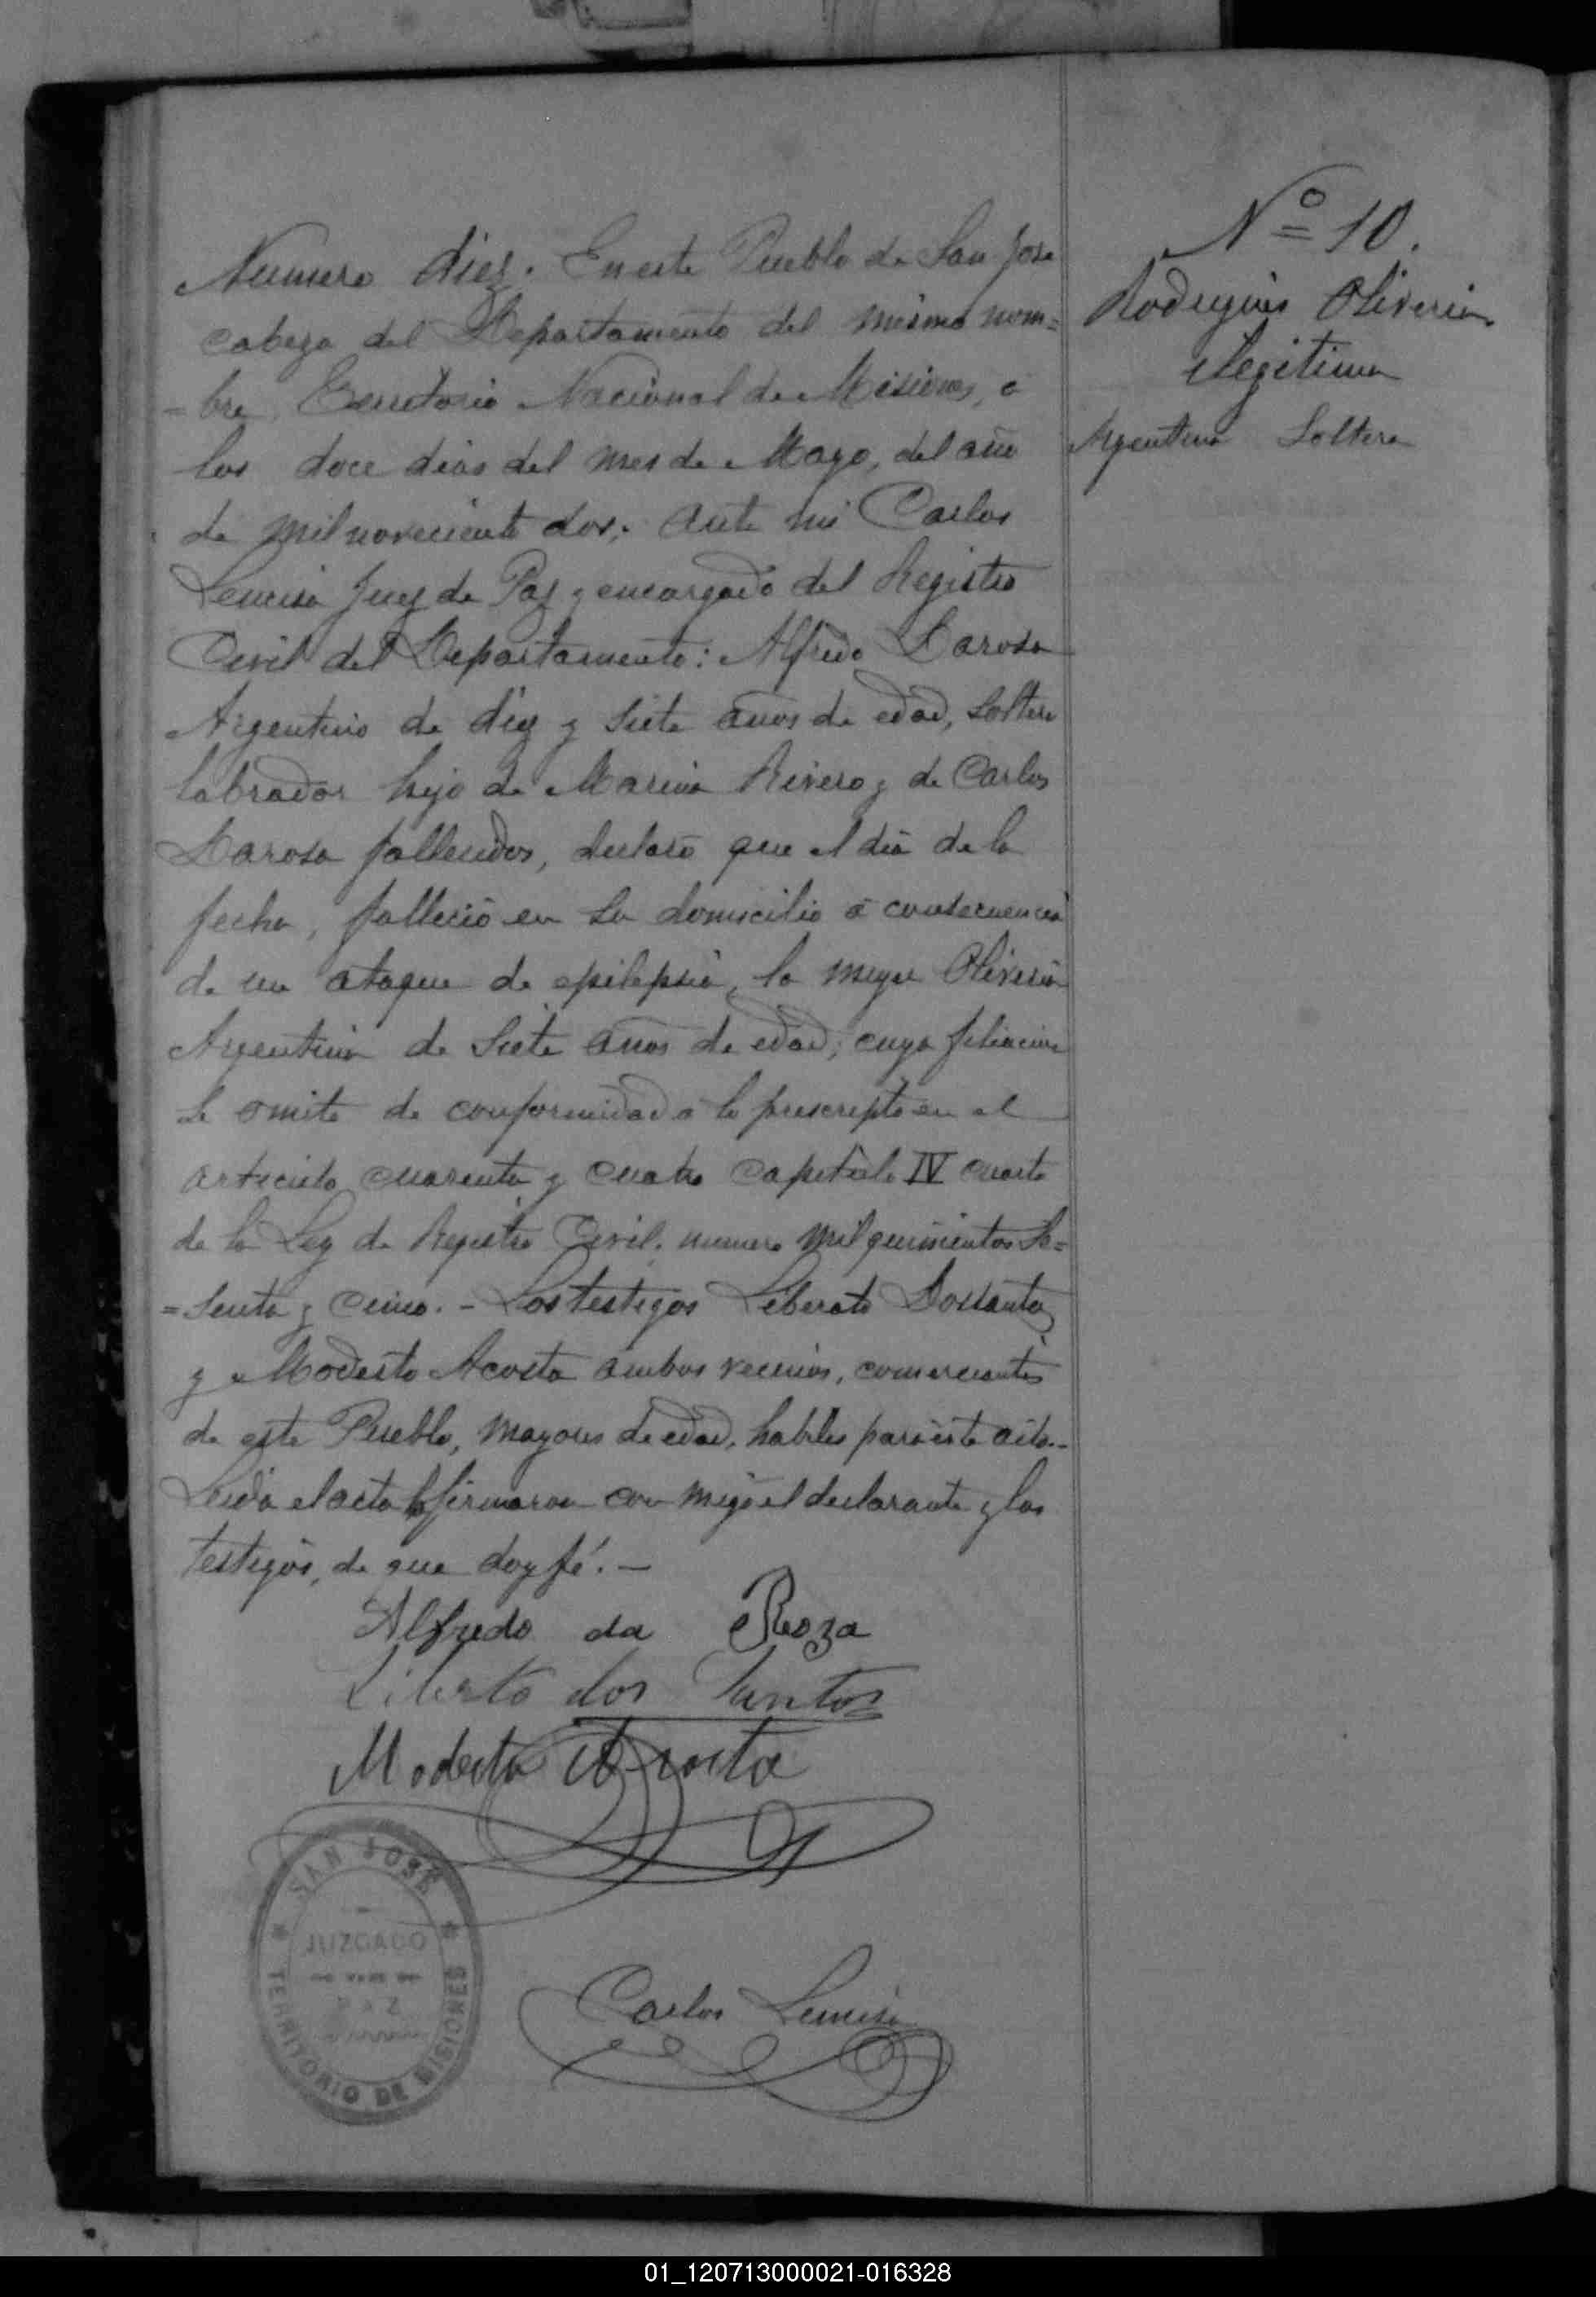 Nº 10.
Rodriguis Oliveria
ilegitima
Argentina Soltera
Numero diez. En este Pueblo de San Jose
cabeza del Departamento del mismo nom=
=bre, Territorio Nacional de Misiones, a
los doce dias del mes de Mayo, del año
de mil noveciento dos; ante mi Carlos
Juez de Paz y encargado del Registro
Civil del Departamento: Alfredo Darosa
Argentino de diez y siete años de edad, soltero
labrador hijo de Maria Rivero y de Carlos
Darosa fallecidos, declaró que el dia de la
fecha, falleció en su domicilio á consecuencia
de un ataque de epilepsia, la mujer Oliveria
Argentina de siete años de edad; cuya filiacion
se omite de conformidad a lo prescripto en el
articulo cuarenta y cuatro Capitulo IV cuarto
de la Ley de Registro Civil. numero mil quinientos se=
=senta y cinco. - Los testigos Liberato Dossantos
y Modesto Acosta ambos vecinos, comerciantes
de este Pueblo, mayores de edad, habiles para este acto.-
Leida el acta firmaron con migo el declarante y los
testigos, de que doy fé. —
Alfredo da Roza
Liberto dos Santos
Modesto Acosta
SAN JOSÉ
JUZGADO
DE
PAZ
TERRITORIO DE MISIONES
Carlos
01_120713000021-016328